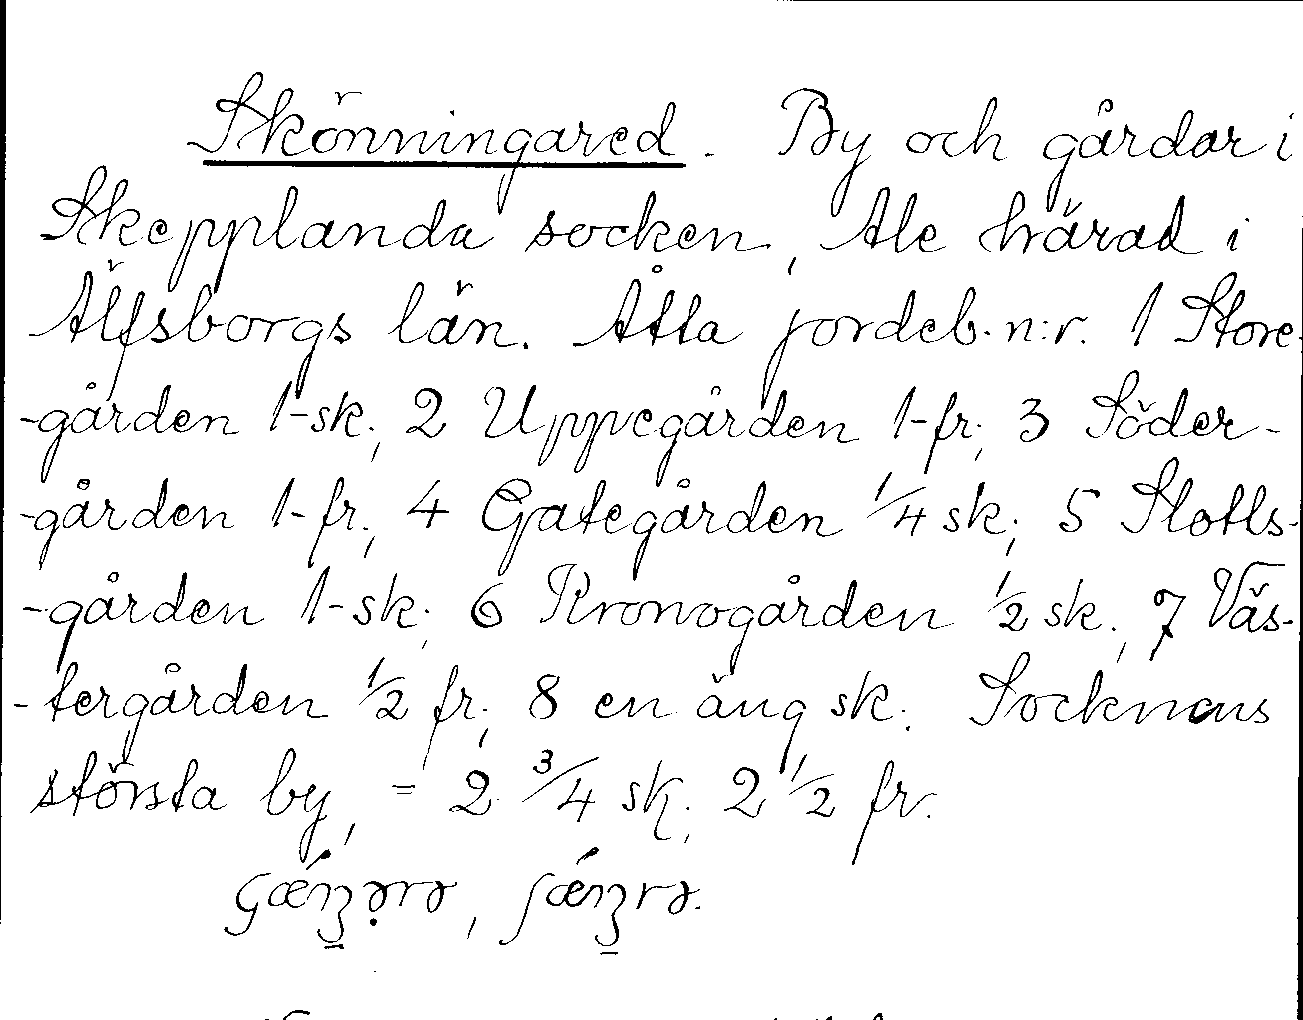 Skönningared. By och gårdar i
Skepplanda socken, Ale härad i
Älfsborgs län. Åtta jordeb. n:r. 1 Store-
-gården 1-sk; 2 Uppegården 1-fr; 3 Söder-
-gården 1-fr; 4 Gategården 1/4 sk; 5 Slotts-
-gården 1-sk; 6 Kronogården 1/2 sk; 7 Väs-
-tergården 1/2 fr; 8 en äng sk. Socknens
största by, = 2 3/4 sk; 2 1/2 fr.